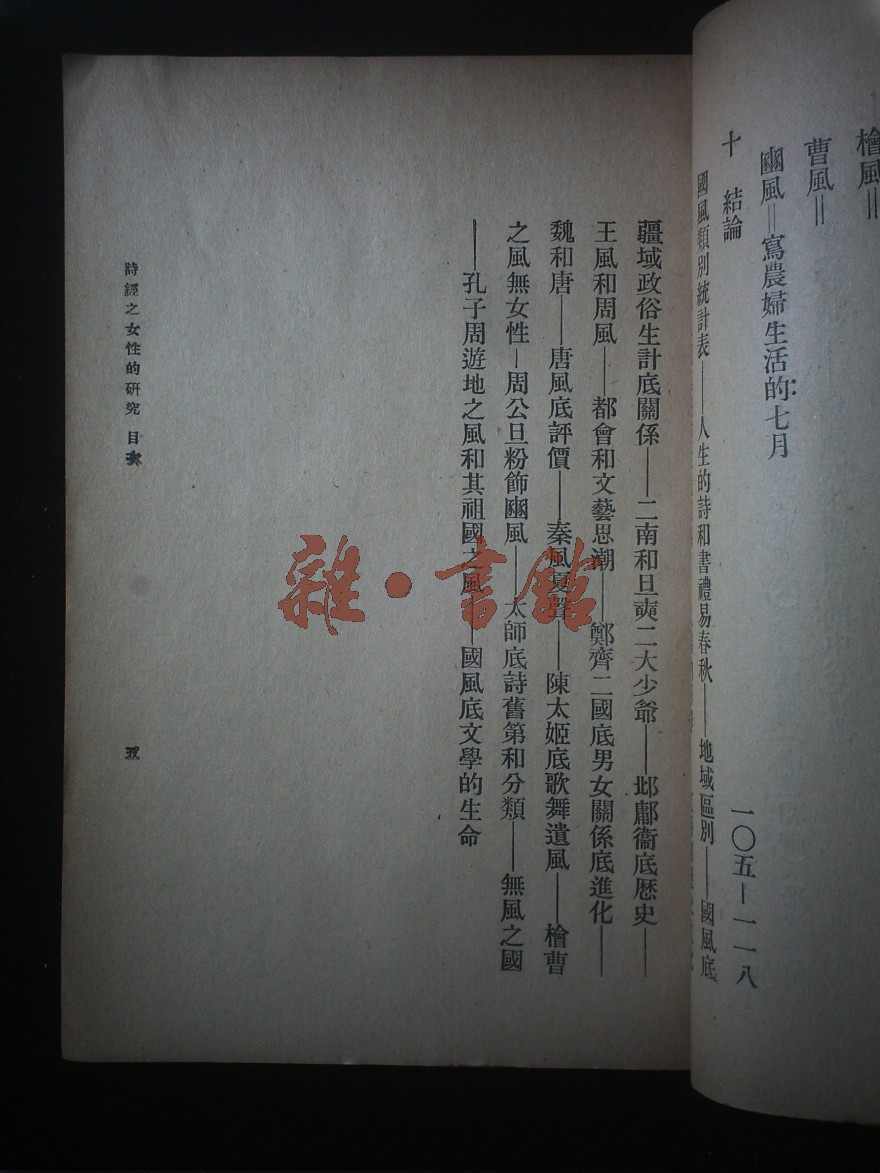 檜風＝
曹風＝
豳風＝寫農婦生活的：七月
十 結論 一〇五－一一八
國風類別統計表——人生的詩和書禮易春秋——地域區別——國風底
疆域政俗生計底關係——二南和旦奭二大少爺——邶鄘衞底歷史——
王風和周風——都會和文藝思潮——鄭齊二國底男女關係底進化——
魏和唐——唐風底評價——秦風夏聲——陳太姬底歌舞遺風——檜曹
之風無女性－周公旦粉飾豳風——太師底詩舊第和分類——無風之國
——孔子周遊地之風和其祖國之風——國風底文學的生命
詩經之女性的研究 目次
五
雜·書館